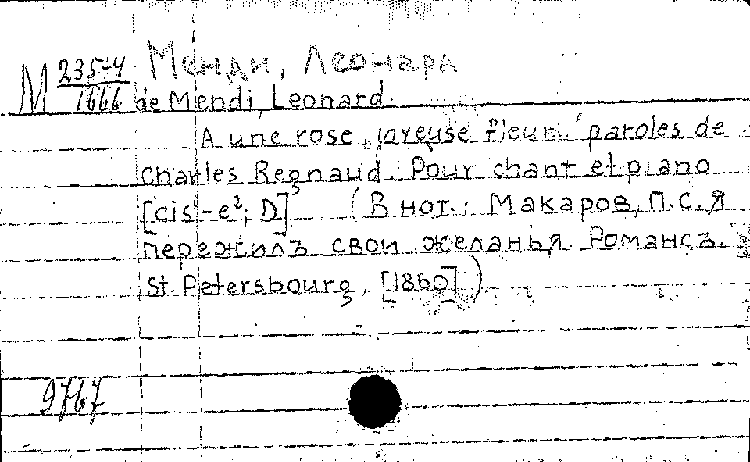 Менди, Леонард
М 235-4/1666
de Mendi, Leonard.
A une rose „joyeuse fleur“ paroles de
Charles Regnaud. Pour chant et piano
[cis-e²; D] (В нот.: Макаров, П.С. Я
пережилъ свои желанья. Романсъ.
St Petersbourg, [1860])
9767